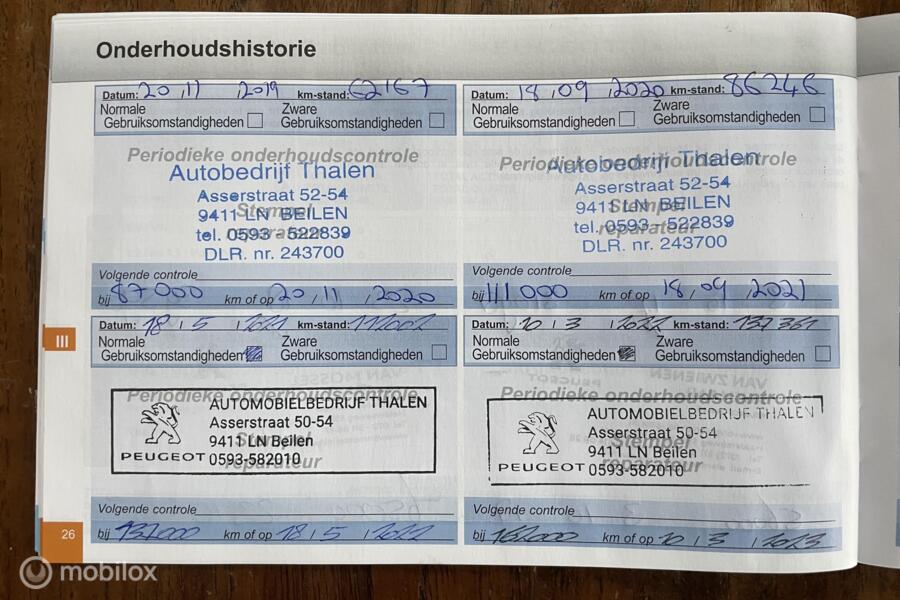 Onderhoudshistorie
Datum: 20 , 11 , 2019 km-stand: 62167
Normale Gebruiksomstandigheden
Zware Gebruiksomstandigheden
Periodieke onderhoudscontrole
Autobedrijf Thalen
Asserstraat 52-54
9411 LN BEILEN
Stempel
tel. 0593 - 522839
reparateur
DLR. nr. 243700
Volgende controle
bij 87000 km of op 20 , 11 , 2020
Datum: 18 , 09 , 2020 km-stand: 86246
Normale Gebruiksomstandigheden
Zware Gebruiksomstandigheden
Periodieke onderhoudscontrole
Autobedrijf Thalen
Asserstraat 52-54
9411 LN BEILEN
Stempel
tel. 0593 - 522839
reparateur
DLR. nr. 243700
Volgende controle
bij 111000 km of op 18 , 09 , 2021
III
Datum: 18 , 5 , 2021 km-stand:
Normale Gebruiksomstandigheden
Zware Gebruiksomstandigheden
Periodieke onderhoudscontrole
AUTOMOBIELBEDRIJF THALEN
Asserstraat 50-54
9411 LN Beilen
Stempel
PEUGEOT 0593-582010
reparateur
Volgende controle
bij 137000 km of op 18 , 5 , 2022
Datum: 10 , 3 , 2022 km-stand: 137361
Normale Gebruiksomstandigheden
Zware Gebruiksomstandigheden
Periodieke onderhoudscontrole
AUTOMOBIELBEDRIJF THALEN
Asserstraat 50-54
9411 LN Beilen
Stempel
PEUGEOT 0593-582010
reparateur
Volgende controle
bij 162000 km of op 10 , 3 , 2023
26
mobilox